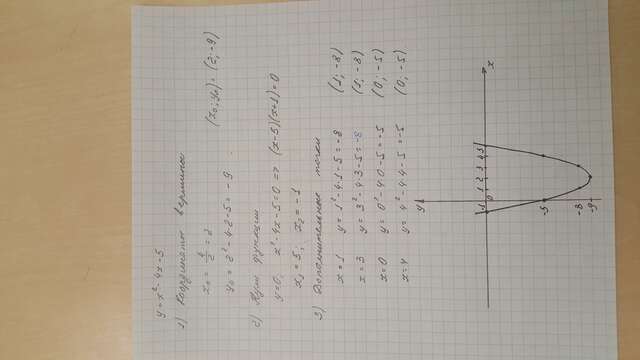 y = x² - 4x - 5
1) Координаты вершины
x₀ = 4/2 = 2
y₀ = 2² - 4·2 - 5 = -9 (x₀; y₀) = (2; -9)
2) Нули функции
y = 0, x² - 4x - 5 = 0 => (x-5)(x+1) = 0
x₁ = 5, x₂ = -1
3) Дополнительные точки
x = 1 y = 1² - 4·1 - 5 = -8 (1; -8)
x = 3 y = 3² - 4·3 - 5 = -8 (1; -8)
x = 0 y = 0² - 4·0 - 5 = -5 (0; -5)
x = 4 y = 4² - 4·4 - 5 = -5 (0; -5)
y
x
-1 0 1 2 3 4 5
-5
-8
-9